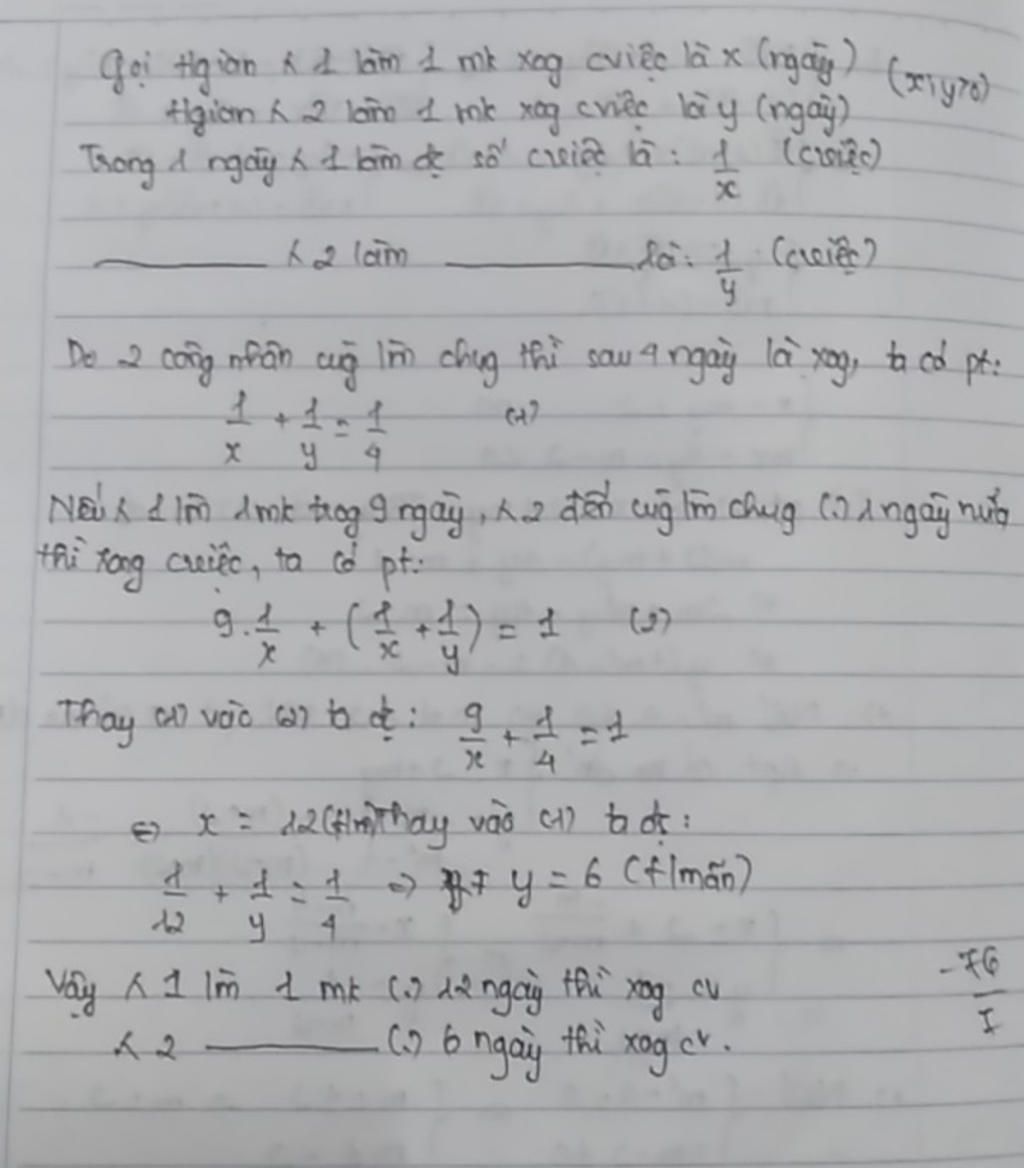 Gọi tgian < 1 làm 1 mk xog cviệc là x (ngày) (x;y>0)
tgian < 2 làm 1 mk xog cviệc là y (ngày)
Trong 1 ngày < 1 làm đc số cviệc là: 1/x (cviệc)
______ < 2 làm ______ là: 1/y (cviệc)
Do 2 công nhân cùg lm chug thì sau 4 ngày là xog, ta có pt:
1/x + 1/y = 1/4 (1)
Nếu < 1 lm 1mk trog 9 ngày, < 2 đến cùg lm chug (.) 1 ngày nữa
thì xong cviệc, ta có pt:
9. 1/x + (1/x + 1/y) = 1 (2)
Thay (1) vào (2) ta đc: 9/x + 1/4 = 1
⇔ x = 12 (t/m) Thay vào (1) ta đc:
1/12 + 1/y = 1/4 => y = 6 (t/mãn)
Vậy < 1 lm 1 mk (.) 12 ngày thì xog cv
< 2 ______ (.) 6 ngày thì xog cv.